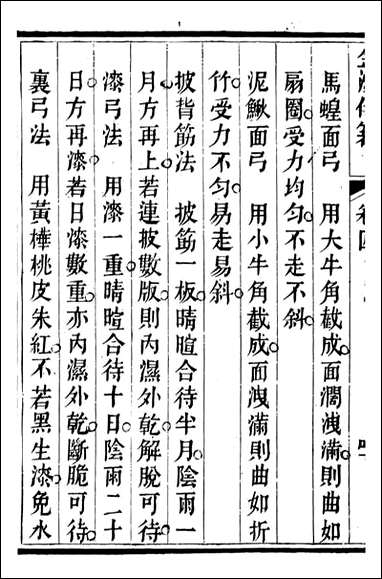 馬蝗面弓　用大牛角截成。面濶洩滿。則曲如
扇圈。受力均勻。不走不斜。
泥鰍面弓　用小牛角截成面洩滿則曲如折
竹。受力不勻。易走易斜。
披背筋法　披筋一板。晴暄合待半月。陰雨一
月。方再上。若連披數版。則内濕外乾。解脫可待。
漆弓法　用漆一重。晴暄合待十日。陰雨二十
日。方再漆。若日漆數重。亦内濕外乾。斷脆可待。
裏弓法　用黃樺桃皮朱紅。不若黑生漆。免水